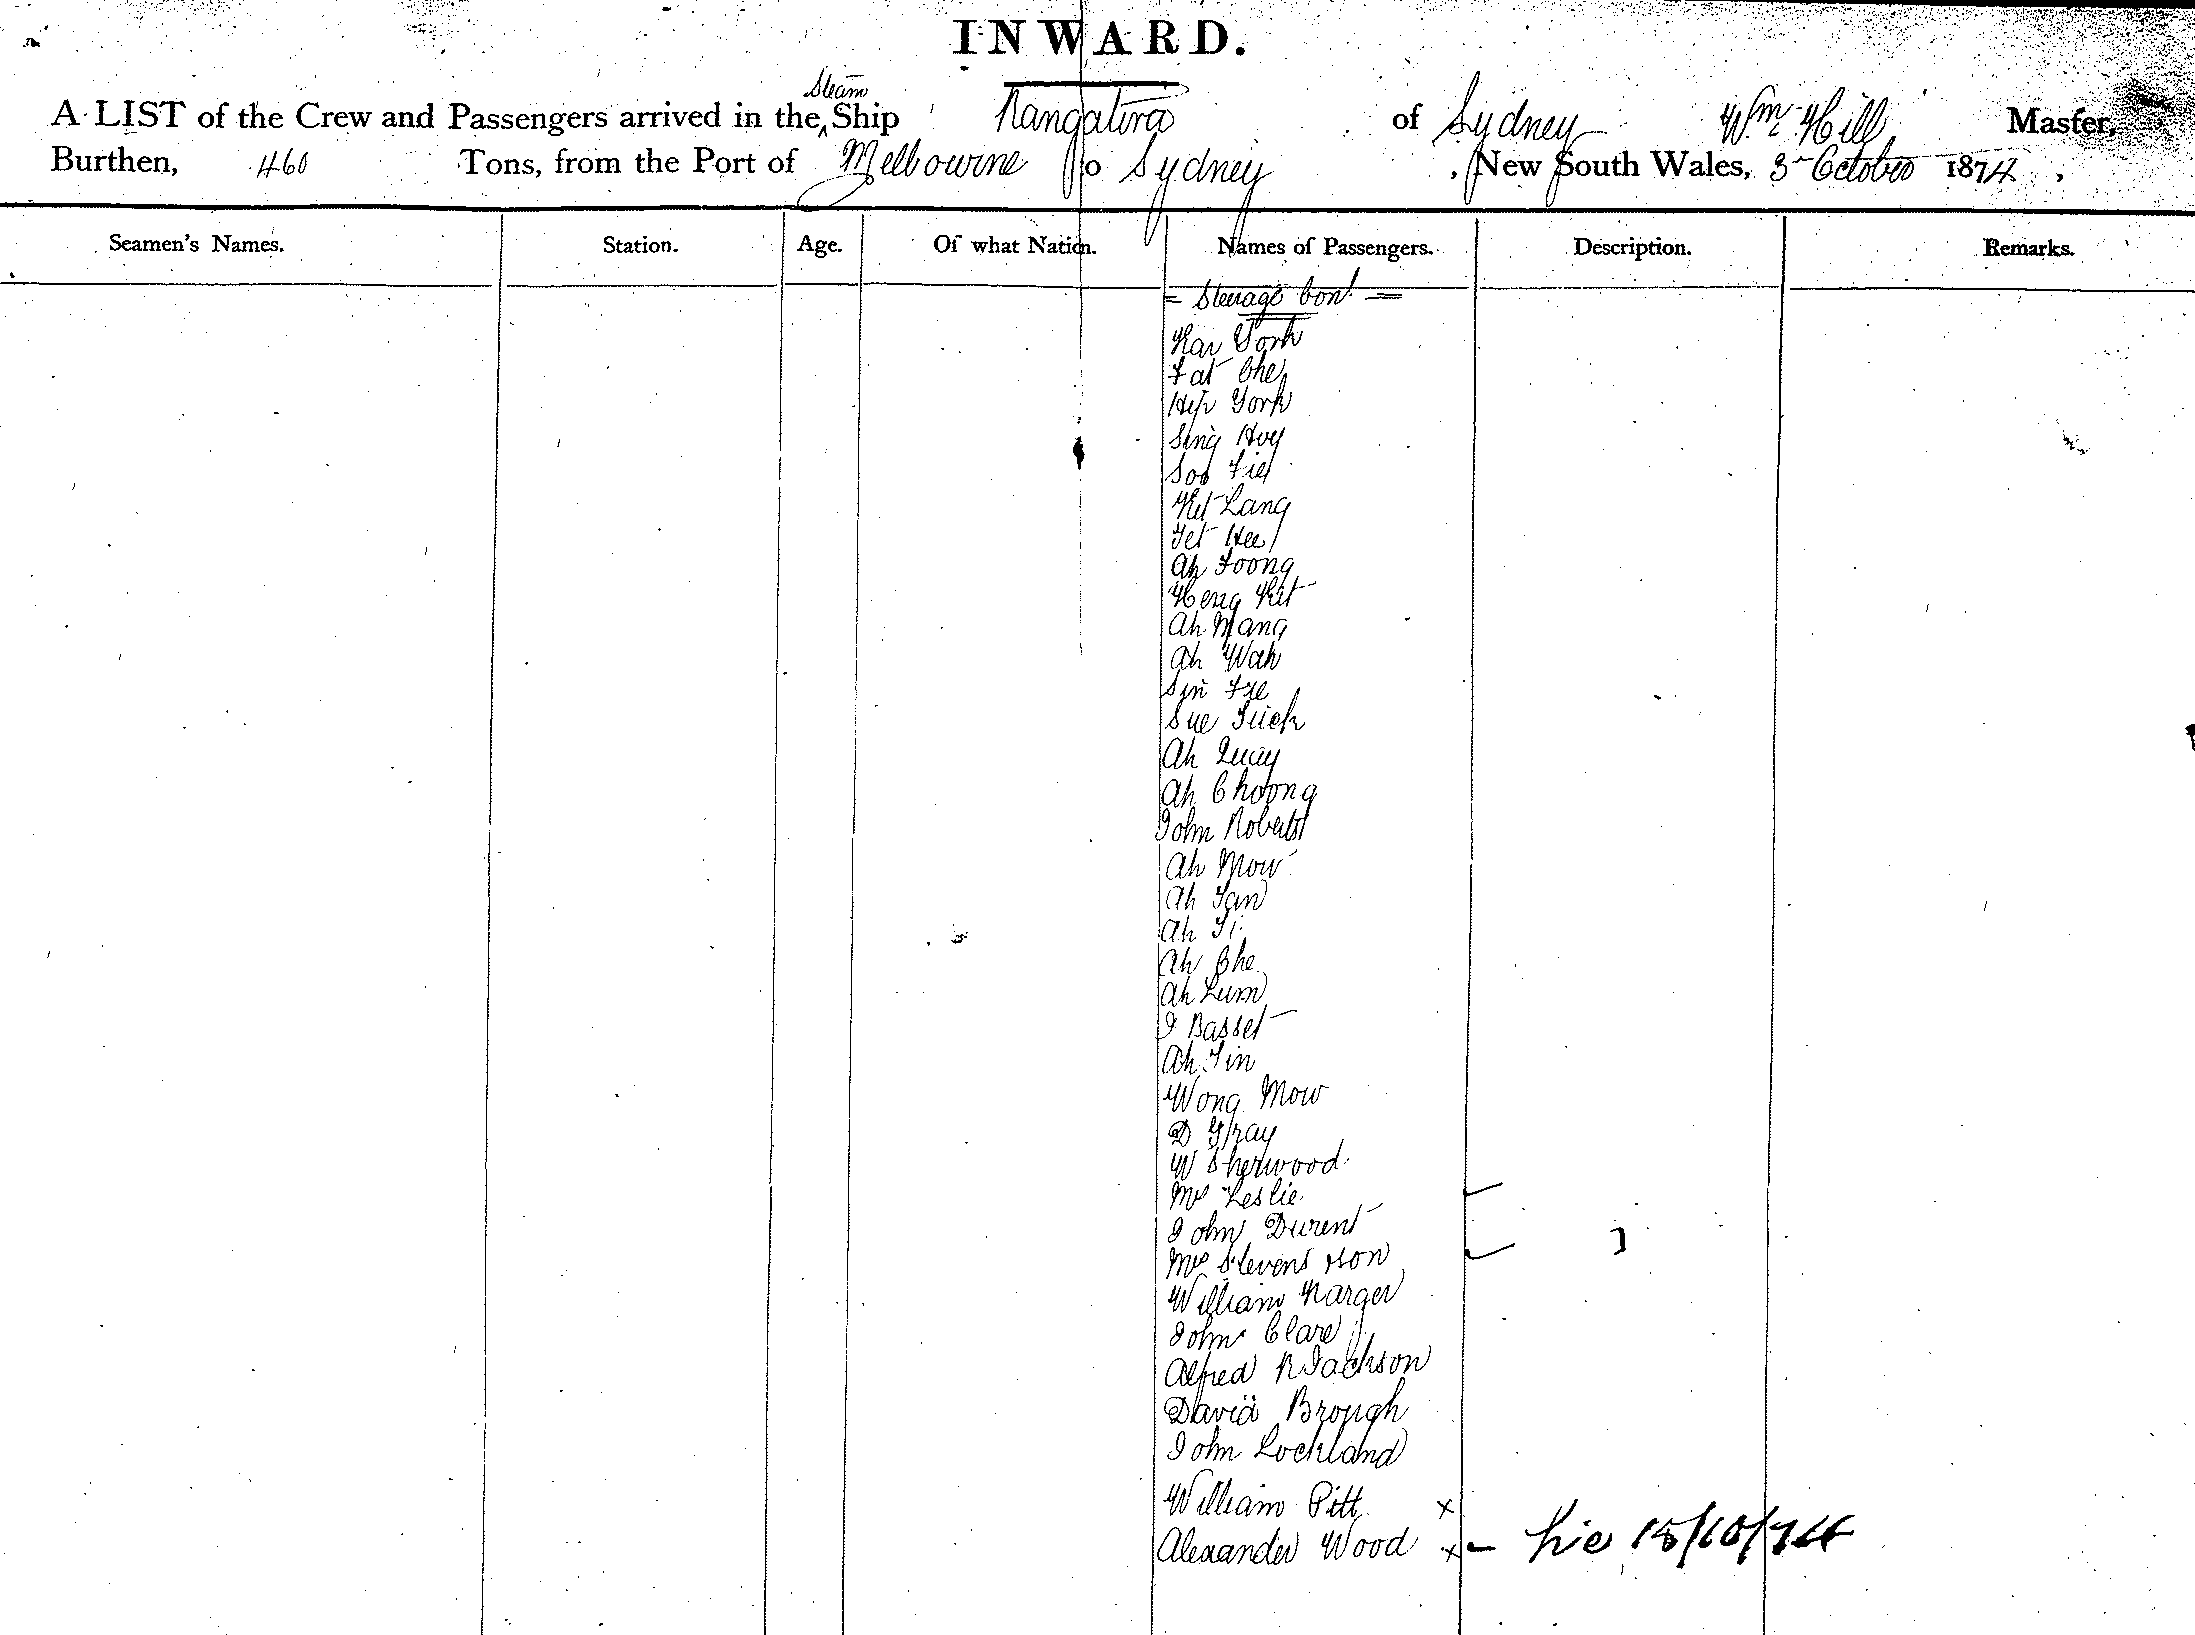 INWARD.
Steam
A LIST of the Crew and Passengers arrived in the Ship Rangatira of Sydney Wm Hill Master,
Burthen, 460 Tons, from the Port of Melbourne to Sydney, New South Wales, 3 October 1874,
Seamen's Names. Station. Age. Of what Nation. Names of Passengers. Description. Remarks.
= Steerage Cont =
Kar York
Fat Che
Hip York
Sing Hoy
Soo
Ket Lang
Yet Hee
Ah Foong
Heng Kit
Ah Mang
Ah Wah
Sin
Sue
Ah Quay
Ah Choong
John Roberts
Ah Mow
Ah
Ah
Ah Che
Ah Lum
J Basset
Ah
Wong Mow
D Gray
W Sherwood
Mrs Leslie
John Durent
Mrs Stevenson
William
John Clare
Alfred R Jackson
David Brough
John Lockland
William Pitt x
Alexander Wood x - 15/10/74